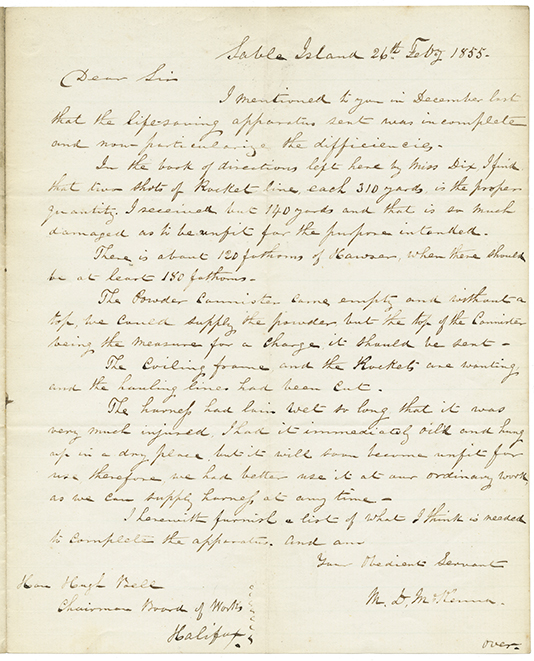 Sable Island 26th Feby 1855-
Dear Sir
I mentioned to you in December last
that the life-saving apparatus sent was incomplete
and now particularize the difficiencies.
In the book of directions left here by Miss Dix I find
that two shots of Rocket line, each 310 yards, is the proper
quantity. I received but 140 yards and that is so much
damaged as to be unfit for the purpose intended.
There is about 120 fathoms of Hawser, when there should
be at least 180 fathoms-
The Powder Cannister came empty, and without a
top, we could supply the powder, but the top of the Cannister
being the measure for a charge, it should be sent -
The Coiling frame and the Rockets are wanting,
and the hauling lines had been cut -
The harness had lain wet so long that it was
very much injured, I had it immediately oild and hung
up in a dry place but it will soon become unfit for
use therefore we had better use it at our ordinary work,
as we can supply harness at any time -
I herewith furnish a list of what I think is needed
to complete the apparatus. And am
Your Obedient Servant
M. D. McKenna.
Hon Hugh Bell
Chairman Board of Works
Halifax
over-